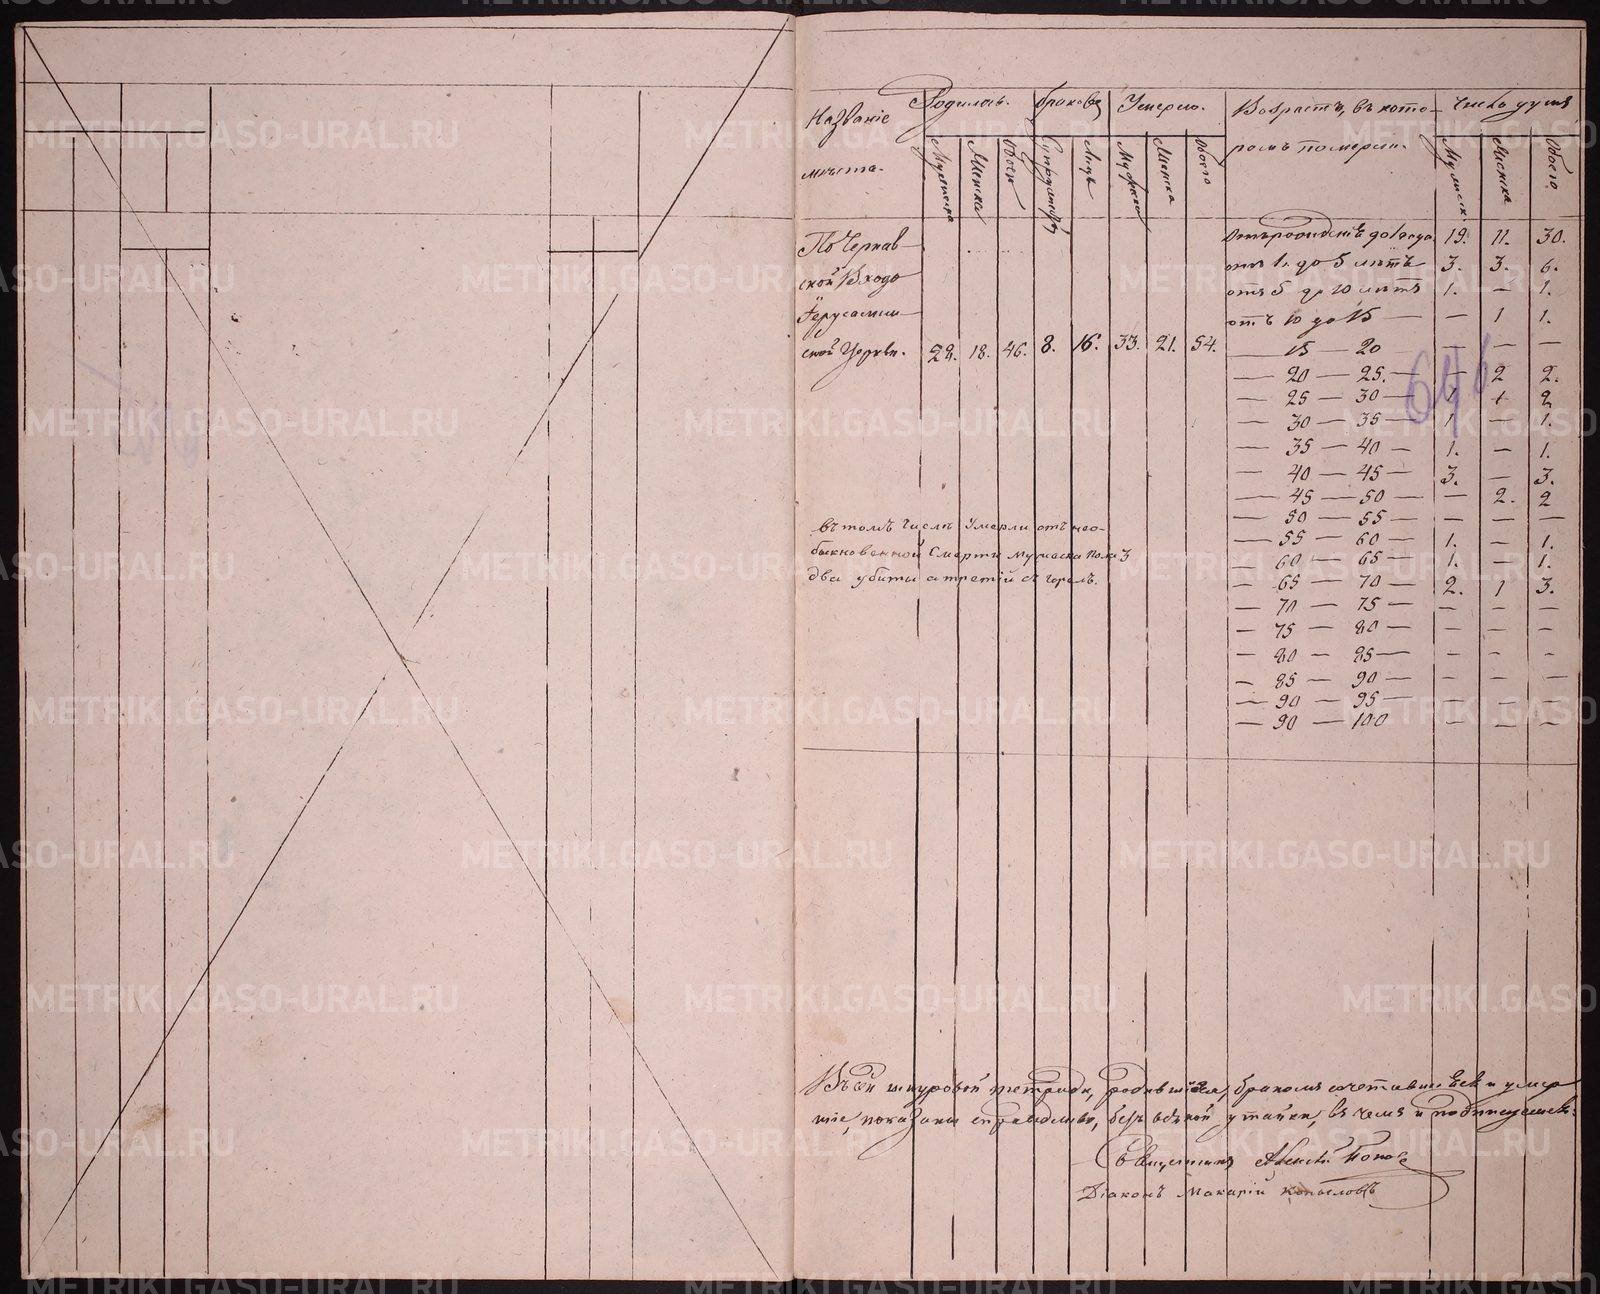 Названіе
мѣста.
Родилось. браковъ Умерло. Возрастъ, въ кото- Число душъ
ромъ померли.
Мужеска Женска Обоего Супружествъ Лицъ Мужеска Женска Обоего Мужеск. Женска Обоего
По Чернав-
ской Входо
Іерусалим-
ской Церкви. 28. 18. 46. 8. 16. 33. 21. 54.
Отъ рожденія до 1 года 19. 11. 30.
отъ 1. до 5 лѣтъ 3. 3. 6.
отъ 5 до 10 лѣтъ 1. — 1.
отъ 10 до 15 — — 1 1.
— 15 — 20 — — —
— 20 — 25. — — 2 2.
— 25 — 30 — 1. 1 2
— 30 — 35 — 1 — 1.
— 35 — 40 — 1. — 1.
— 40 — 45 — 3. — 3.
— 45 — 50 — — 2. 2
— 50 — 55 — — — —
— 55 — 60 — 1. — 1.
— 60 — 65 — 1. — 1.
— 65 — 70 — 2. 1 3.
— 70 — 75 — — — —
— 75 — 80 — — — —
— 80 — 85 — — — —
— 85 — 90 — — — —
— 90 — 95 — — — —
— 90 — 100 — — —
въ томъ числѣ Умерли отъ нео-
быкновенной Смерти мужеска пола 3
два убиты а третій сгорелъ.
Въ сей шнуровой тетради, родившіеся, бракомъ сочетавшіеся и умер
шіе, показаны справедливо, безъ всякой утайки, въ чемъ и подписуемся:
Священникъ Алексѣй Поповъ
Діаконъ Макарій Копыловъ
METRIKI.GASO-URAL.RU